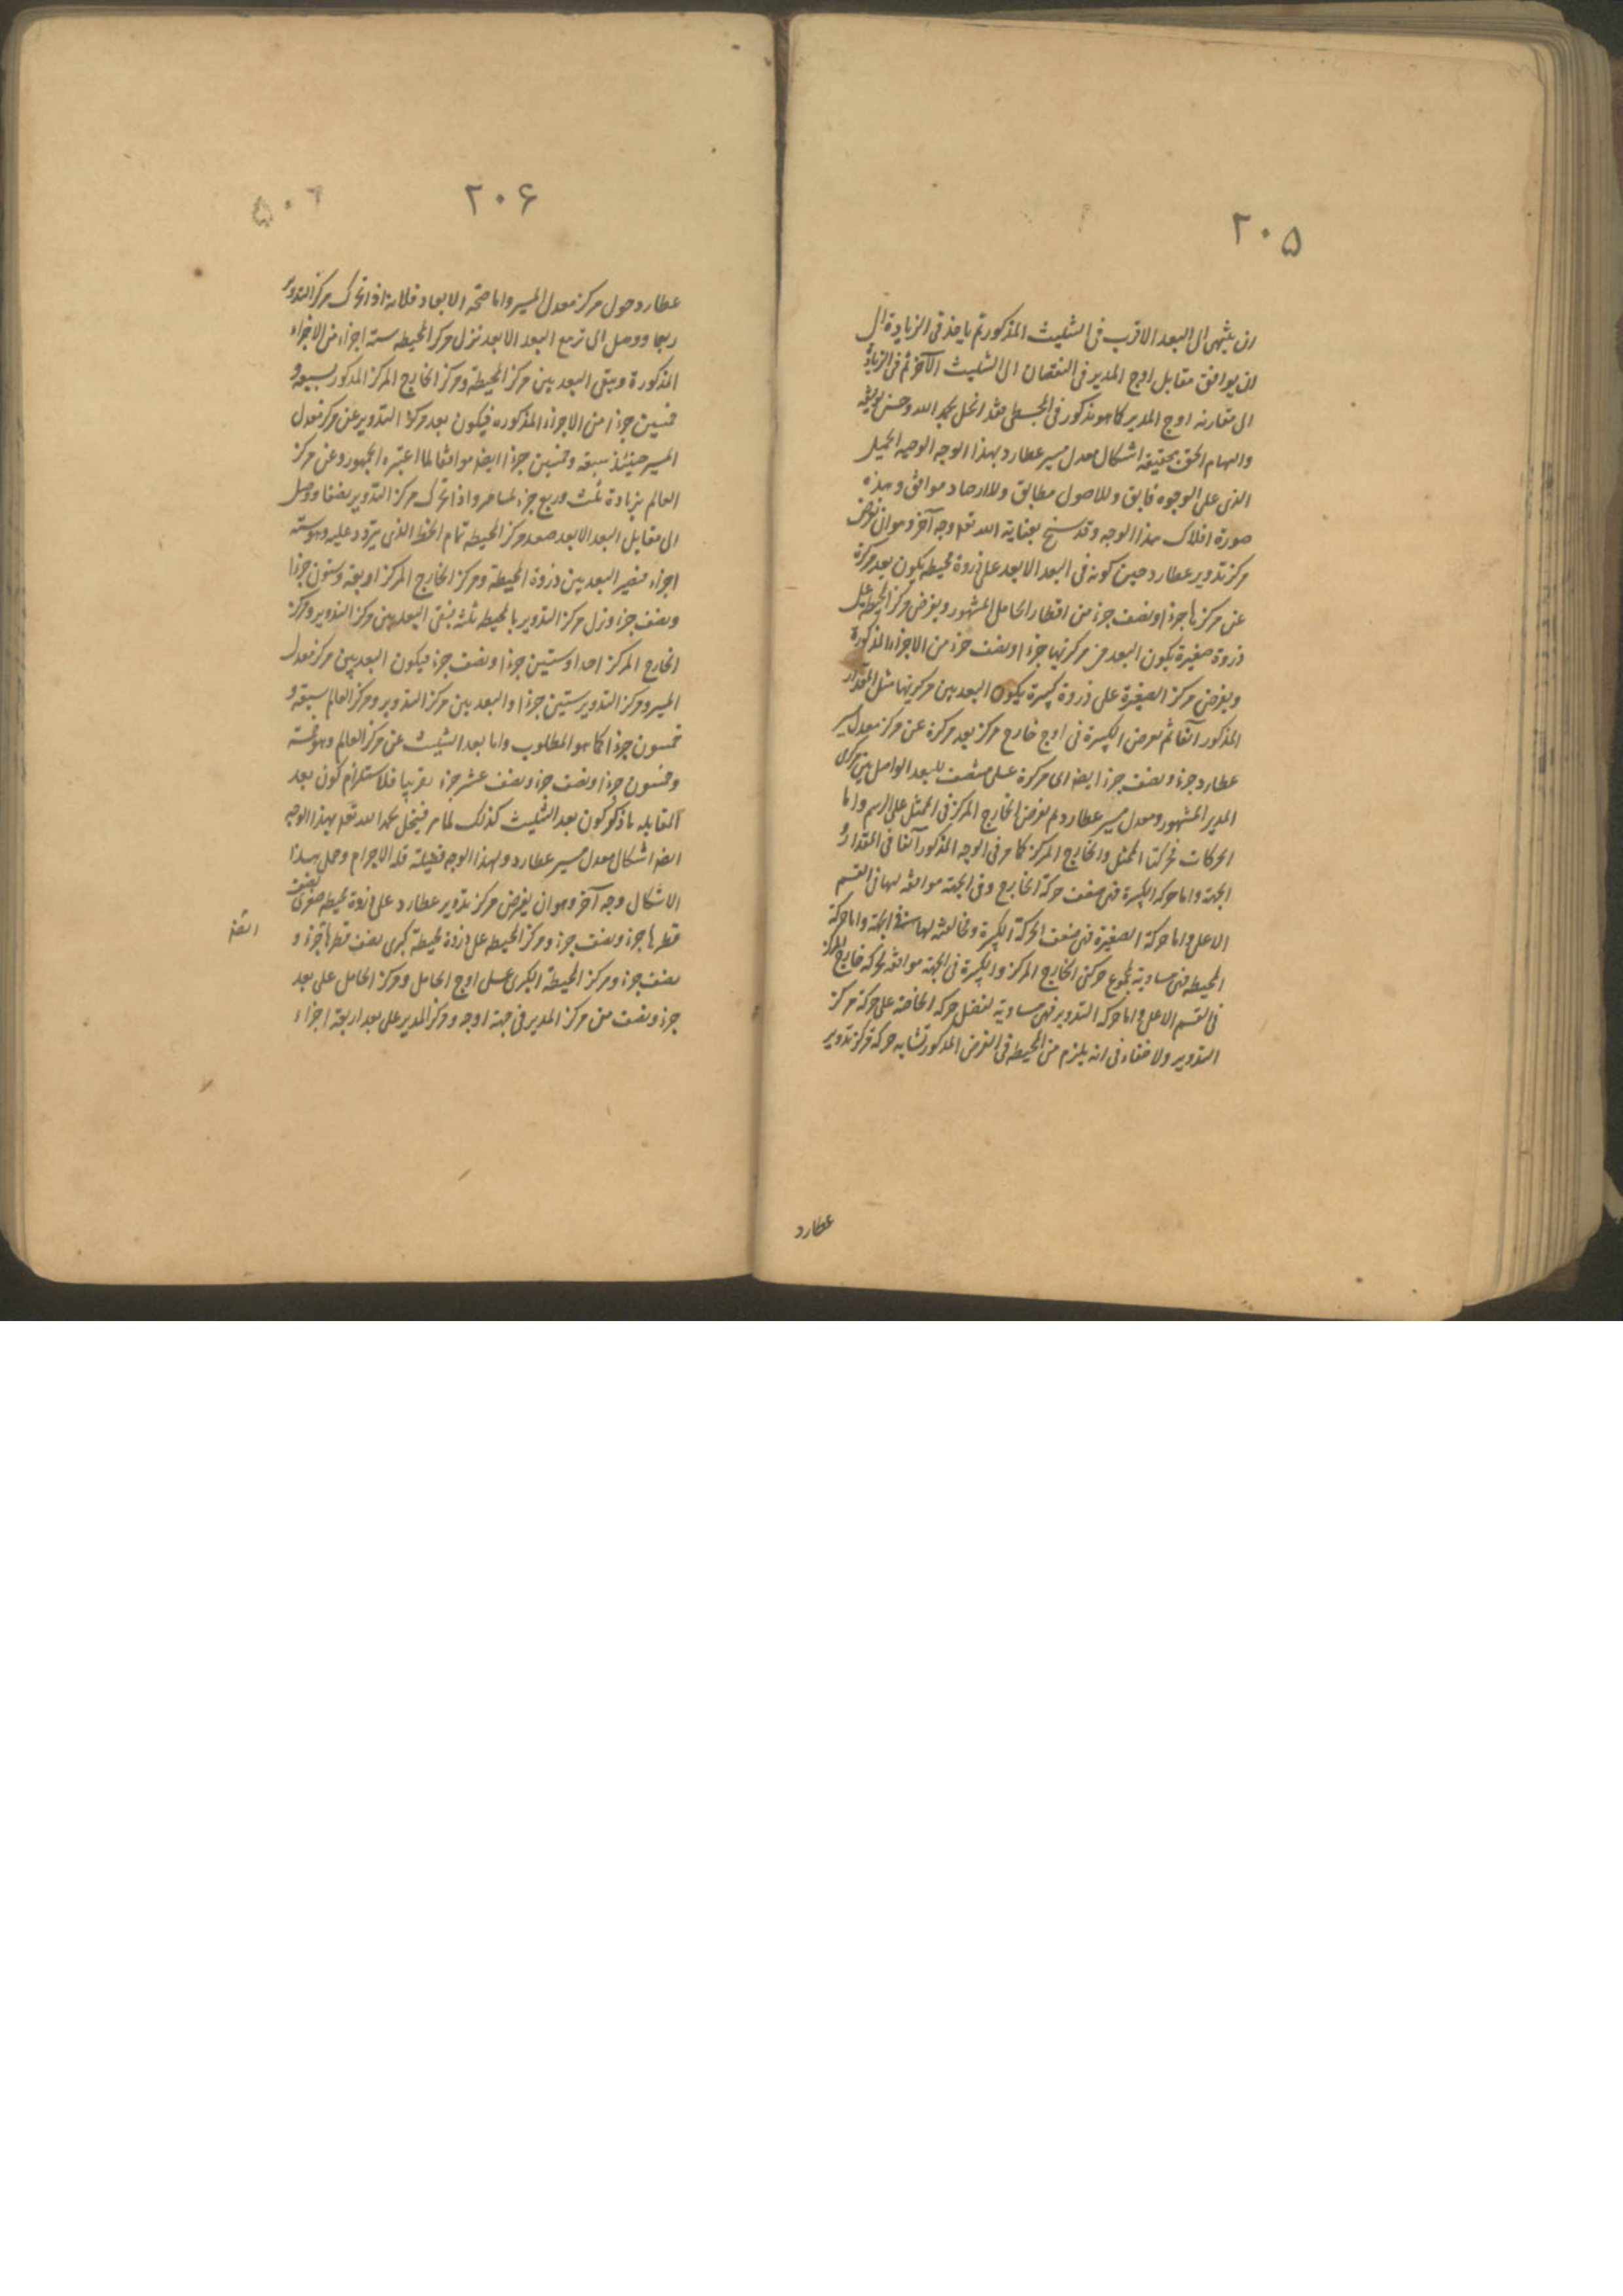 ٢٠٥
ان ينتهى الى البعد الاقرب فى التثليث المذكور ثم ياخذ فى الزيادة الى
ان يوافق مقابل اوج المدير فى النقصان الى التثليث الآخر ثم فى الزيادة
الى مقارنة اوج المدير كما هو مذكور فى المجسطى فقد انحل بحمد الله وحسن توفيقه
والهام الحق بحقيقة اشكال معدل مسير عطارد بهذا الوجه الوجيه الجميل
الذى على الوجوه فايق وللاصول مطابق وللارصاد موافق وهذه
صورة افلاك بهذا الوجه وقد سنح بعناية الله تعم وجه آخر وهو ان نفرض
مركز تدوير عطارد حين كونه فى البعد الابعد على ذروة محيطة يكون بعد مركزه
عن مركزها جزءا ونصف جزء من اقطار الحامل المشهور ويفرض مركز المحيطة على
ذروة صغيرة يكون البعد من مركزيهما جزءا ونصف جزء من الاجزاء المذكورة
ويفرض مركز الصغيرة على ذروة كبيرة يكون البعد بين مركزيهما مثل المقدار
المذكور آنفا ثم نفرض الكبيرة فى اوج خارج مركز بعد مركزه عن مركز معدل مسير
عطارد جزء ونصف جزء ايضا اى مركزه على منتصف البعد الواصل بين مركزى
المدير المشهور ومعدل مسير عطارد ثم نفرض الخارج المركز فى الممثل على الرسم واما
الحركات فحركتا الممثل والخارج المركز كما مر فى الوجه المذكور آنفا فى المقدار و
الجهة واما حركة الكبيرة فهى ضعف حركة الخارج وفى الجهة موافقة لها فى القسم
الاعلى واما حركة الصغيرة فهى ضعف الحركة الكبيرة ومخالفة لها فى الجهة واما حركة
المحيطة فهى مساوية لمجموع حركتى الخارج المركز والكبيرة فى الجهة موافقة لحركة خارج المركز
فى القسم الاعلى واما حركة التدوير فهى مساوية لفضل حركة الخاصة على حركة مركز
التدوير ولا خفاء فى انه يلزم من المحيطة فى الفرض المذكور تشابه حركة مركز تدوير
عطارد
٢٠۶
عطارد حول مركز معدل المسير واما صحة الابعاد فلانه اذا تحرك مركز التدوير
ربعا ووصل الى تربيع البعد الابعد نزل مركز المحيطة ستة اجزاء من الاجزاء
المذكورة ويبقى البعد بين مركز المحيطة ومركز الخارج المركز المذكور سبعة و
خمسين جزءا من الاجزاء المذكورة فيكون بعد مركز التدوير عن مركز معدل
المسير حينئذ سبعة وخمسين جزءا ايضا موافقا لما اعتبره الجمهور وعن مركز
العالم بزيادة ثلث وربع جزء لما مر واذا تحرك مركز التدوير نصفا ووصل
الى مقابل البعد الابعد صعد مركز المحيطة تمام الخط الذى يتردد عليه وهو ستة
اجزاء فيصير البعد بين ذروة المحيطة ومركز الخارج المركز اربعة وستون جزءا
ونصف جزء ونزل مركز التدوير بالمحيطة ثلثة فبقى البعد بين مركز التدوير ومركز
الخارج المركز احدا وستين جزءا ونصف جزء فيكون البعد بين مركز معدل
المسير ومركز التدوير ستين جزءا والبعد بين مركز التدوير ومركز العالم سبعة و
خمسون جزءا كما هو المطلوب واما بعد التثليث عن مركز العالم وهو خمسة
وخمسون جزءا ونصف جزء ونصف عشر جزء تقريبا فلاستلزام كون بعد
المقابلة ما ذكر كون بعد التثليث كذلك لما مر فينحل بحمد الله تعم بهذا الوجه
ايضا اشكال معدل مسير عطارد ولهذا الوجه فضيلة قلة الاجرام وحل بهذا
الاشكال وجه آخر وهو ان يفرض مركز تدوير عطارد على ذروة محيطة صغرى نصف
قطرها جزء ونصف جزء ومركز المحيطة على ذروة محيطة كبرى نصف قطرها جزء و
نصف جزء ومركز المحيطة الكبرى على اوج الحامل ومركز الحامل على بعد
جزء ونصف من مركز المدير فى جهة اوجه ومركز المدير على بعد اربعة اجزاء
ايضا